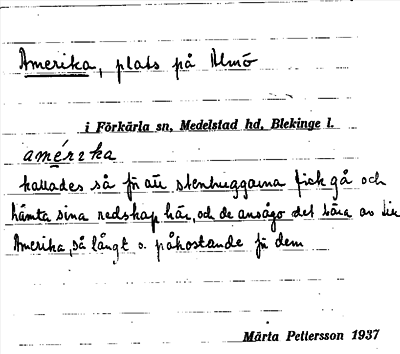 Amerika, plats på Almö
i Förkärla sn, Medelstad hd, Blekinge l.
amérika
kallades så för att stenhuggarna fick gå och
hämta sina redskap här, och de ansågo det vara av
Amerika, så långt o. påkostande för dem
Märta Pettersson 1937